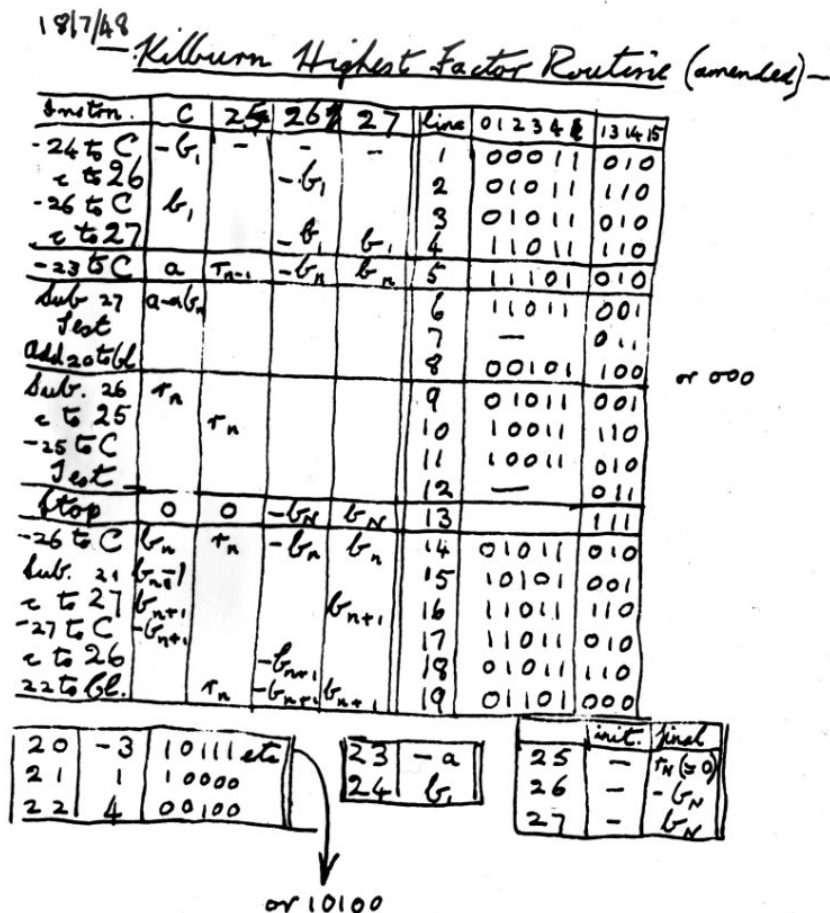 18/7/48
Kilburn Highest Factor Routine (amended)—
Instrn. C 25 26 27 line 0 1 2 3 4 13 14 15
-24 to C -b₁ - - - 1 00011 010
c to 26 -b₁ 2 01011 110
-26 to C b₁ 3 01011 010
c to 27 -b₁ b₁ 4 11011 110
-23 to C a rₙ₋₁ -bₙ bₙ 5 11101 010
Sub 27 a-abₙ 6 11011 001
Test 7 — 011
add 20 to Cl 8 00101 100 or 000
Sub. 26 rₙ 9 01011 001
c to 25 rₙ 10 10011 110
-25 to C 11 10011 010
Test 12 — 011
Stop 0 0 -b_N b_N 13 111
-26 to C bₙ rₙ -bₙ bₙ 14 01011 010
Sub. 21 15 10101 001
c to 27 bₙ₊₁ bₙ₊₁ 16 11011 110
-27 to C -bₙ₊₁ 17 11011 010
c to 26 -bₙ₊₁ 18 01011 110
22 to Cl. rₙ -bₙ₊₁ bₙ₊₁ 19 01101 000
20 -3 10111 etc
21 1 10000
22 4 00100
or 10100
23 -a
24 b₁
init. final
25 - r_N (=0)
26 - -b_N
27 - b_N